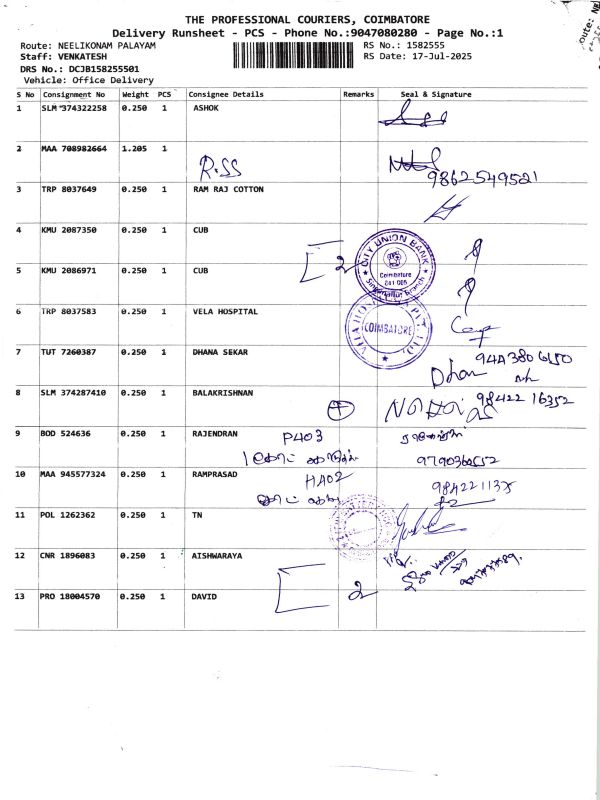 THE PROFESSIONAL COURIERS, COIMBATORE
Delivery Runsheet - PCS - Phone No.:9047080280 - Page No.:1
Route: NEELIKONAM PALAYAM
RS No.: 1582555
Staff: VENKATESH
RS Date: 17-Jul-2025
DRS No.: DCJB158255501
Vehicle: Office Delivery
S No Consignment No Weight PCS Consignee Details Remarks Seal & Signature
1 SLM 374322258 0.250 1 ASHOK
2 MAA 708982664 1.205 1
R.SS
9862549521
3 TRP 8037649 0.250 1 RAM RAJ COTTON
4 KMU 2087350 0.250 1 CUB
2
CITY UNION BANK
Coimbatore
641 005
5 KMU 2086971 0.250 1 CUB
6 TRP 8037583 0.250 1 VELA HOSPITAL
COIMBATORE
7 TUT 7260387 0.250 1 DHANA SEKAR
Dhan
8 SLM 374287410 0.250 1 BALAKRISHNAN
98422 16352
9 BOD 524636 0.250 1 RAJENDRAN P403
10 MAA 945577324 0.250 1 RAMPRASAD HA02
11 POL 1262362 0.250 1 TN
12 CNR 1896083 0.250 1 AISHWARAYA
13 PRO 18004570 0.250 1 DAVID
2